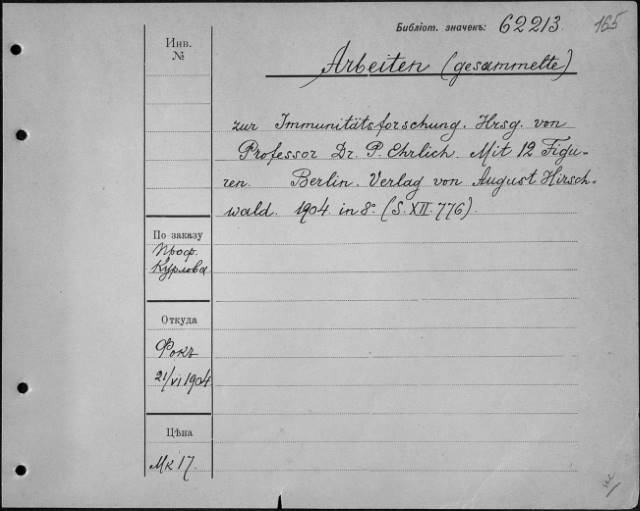 Библіот. значекъ: 62213. 165
Инв.
№
Arbeiten (gesammelte)
zur Immunitätsforschung. Hrsg. von
Professor Dr. P. Ehrlich. Mit 12 Figu-
ren. Berlin. Verlag von August Hirsch-
wald. 1904. in 8°. (S. XII. 776).
По заказу
Проф.
Курлова
Откуда
Фокъ
21/VI 1904
Цѣна
Мк 17.